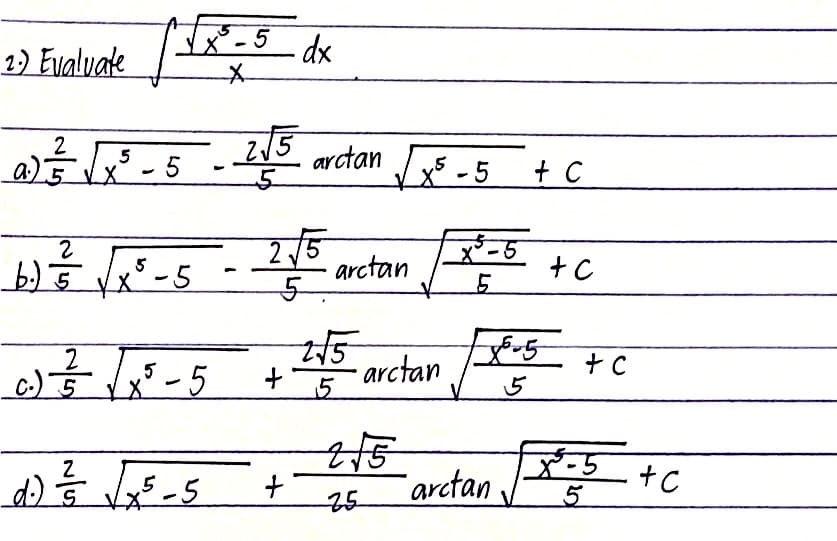 2.) Evaluate ∫ √(x⁵ - 5) / x dx
a.) 2/5 √(x⁵ - 5) - 2√5/5 arctan √(x⁵ - 5) + C
b.) 2/5 √(x⁵ - 5) - 2√5/5 arctan √((x⁵ - 5)/5) + C
c.) 2/5 √(x⁵ - 5) + 2√5/5 arctan √((x⁵ - 5)/5) + C
d.) 2/5 √(x⁵ - 5) + 2√5/25 arctan √((x⁵ - 5)/5) + C